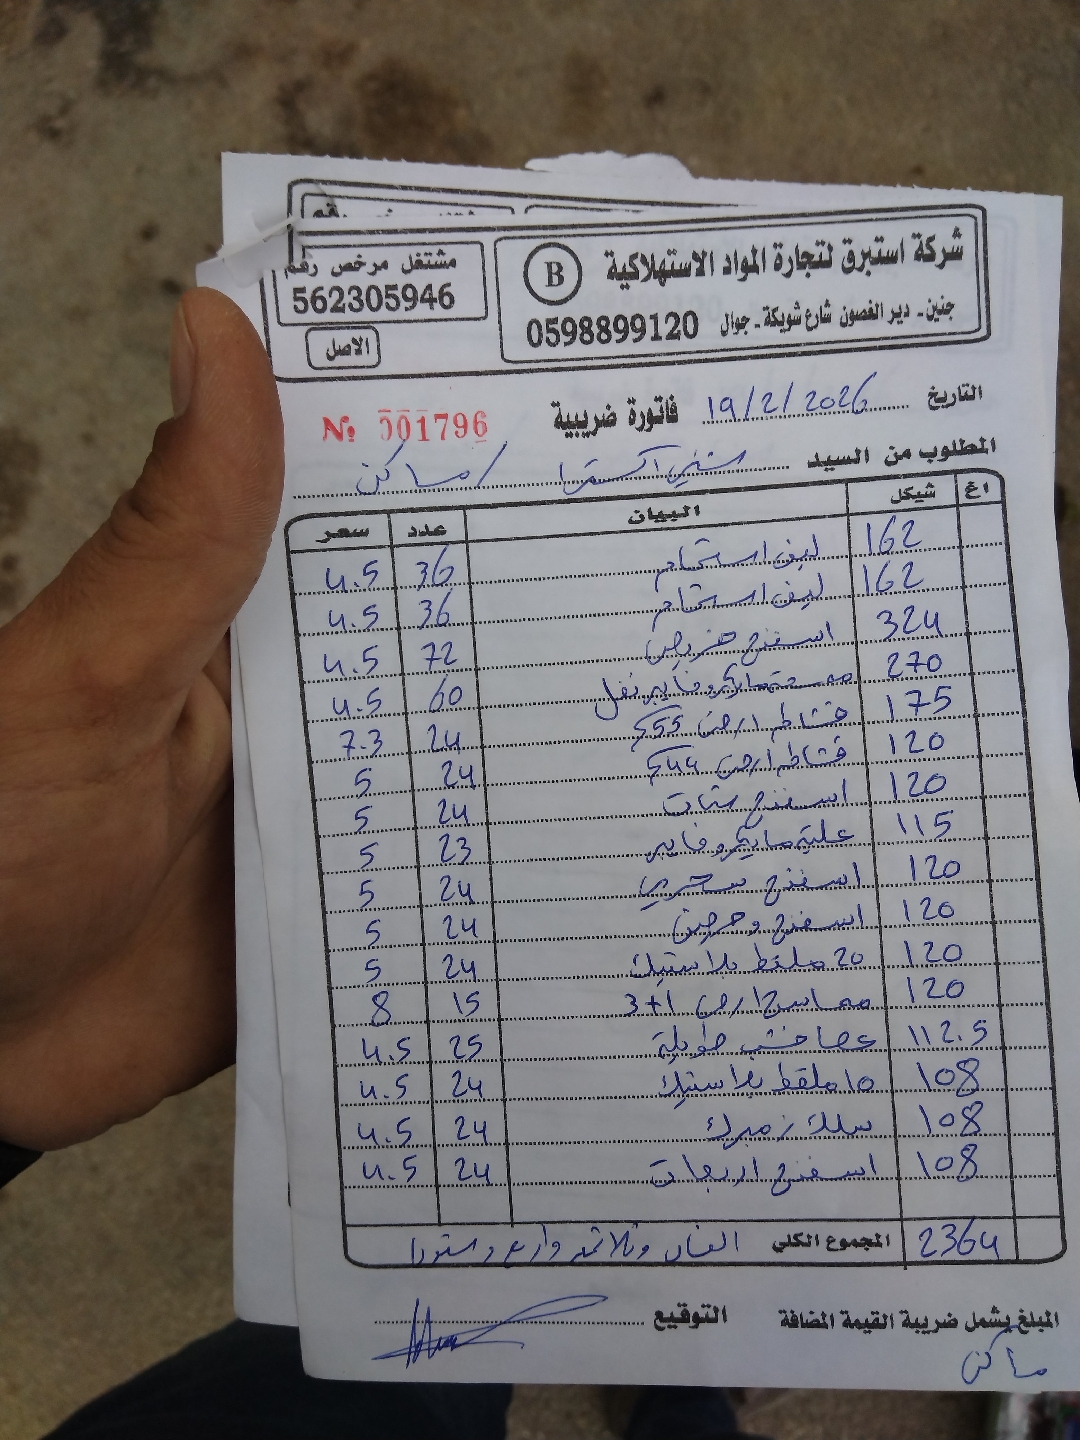 شركة استبرق لتجارة المواد الاستهلاكية
B
جنين - دير الغصون شارع شويكة - جوال 0598899120
مشتغل مرخص رقم
562305946
الاصل
التاريخ 19/2/2026
فاتورة ضريبية
№ 001796
المطلوب من السيد اكسترا / ماكن
اغ شيكل البيان عدد سعر
162 ليف استحمام 36 4.5
162 ليف استحمام 36 4.5
324 اسفنج 72 4.5
270 ممسحة مايكروفايبر 60 4.5
175 قشاطه ارض 55 24 7.3
120 قشاطه ارض 44 24 5
120 اسفنج ستات 24 5
115 مايكروفايبر 23 5
120 اسفنج سحري 24 5
120 اسفنج وجهين 24 5
120 20 ملقط بلاستيك 24 5
120 مماسح ارض 1+3 15 8
112.5 عصا خشب طويلة 25 4.5
108 10 ملقط بلاستيك 24 4.5
108 سلك زمبرك 24 4.5
108 اسفنج اربعات 24 4.5
2364 المجموع الكلي الفان وثلاثمئة واربع وستون
المبلغ يشمل ضريبة القيمة المضافة التوقيع
ماكن